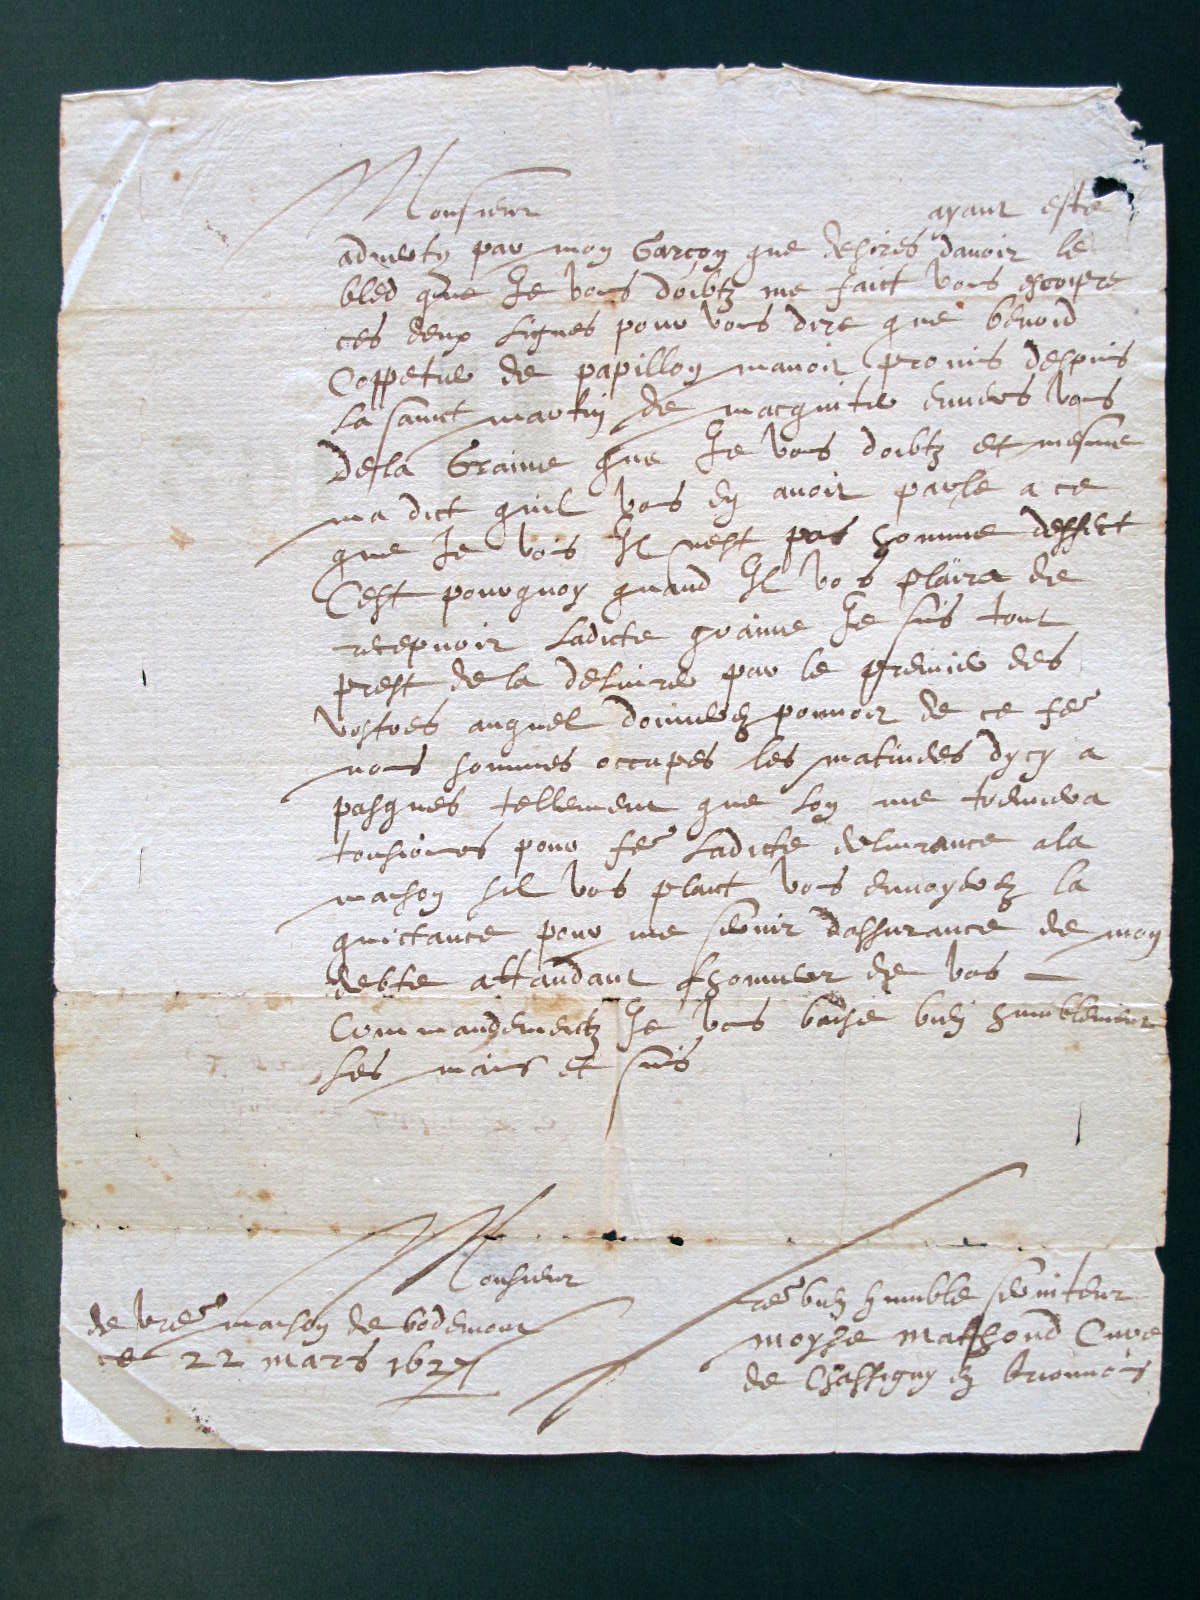 Monsieur ayant este
adverty par mon Garçon que desires davoir le
bled que Je vous doibtz me faict vous escripre
ces deux Lignes pour vous dire que benoid
de papillon mavoit promis despuis
La sainct martin de macquiter envers vous
de la Graine que Je vous doibtz et mesme
ma dict quil vous en avoit parle a ce
que Je vois Il nest pas homme deffect
Cest pourquoy quand Il vos plaira de
recepvoir Ladicte graine Je suis tout
prest de la delivrer par le premier des
vostres auquel donnerez pouvoir de ce fe
nous sommes occupes les matinees dycy a
pasques tellement que Lon me treuvera
tousiours pour fe Ladicte delivrance a la
maison sil vos plaict vous envoyerez la
quictance pour me servir dassurance de mon
debte attandant lhonneur de vos
Commandementz Je vous baise bien humblement
Les mains et suis
Monsieur
de vre maison de bodemont
ce 22 mars 1627
vre bien humble serviteur
moyse mathoud Cure
de Chassigny en brionnois